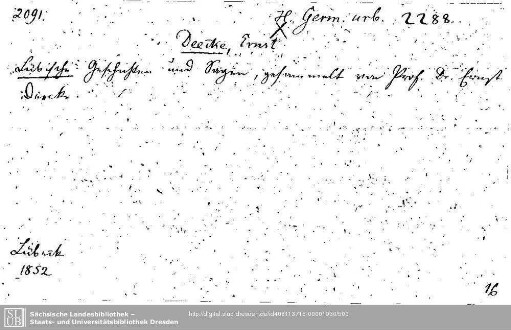 2091.
H. Germ. urb. 2288.
Deecke, Ernst
Lübische Geschichten und Sagen, gesammelt von Prof. Dr. Ernst
Deecke.
Lübeck
1852
16
Sächsische Landesbibliothek –
Staats- und Universitätsbibliothek Dresden